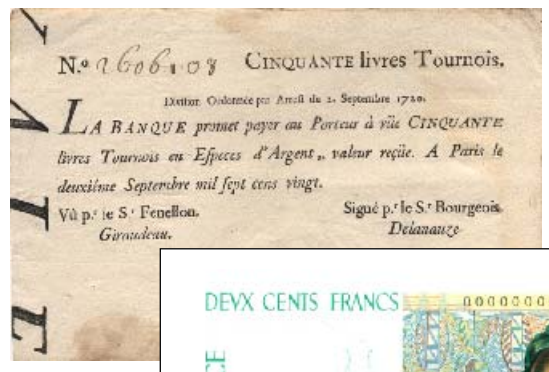 N.º 2606108 CINQUANTE livres Tournois.
Division Ordonnée par Arrest du 2. Septembre 1720.
LA BANQUE promet payer au Porteur à vûe CINQUANTE
livres Tournois en Especes d'Argent, valeur reçüe. A Paris le
deuxiéme Septembre mil sept cens vingt.
Vû p.r le S.r Fenellon. Signé p.r le S.r Bourgeois.
Giraudeau. Delanauze
DEVX CENTS FRANCS 0000000